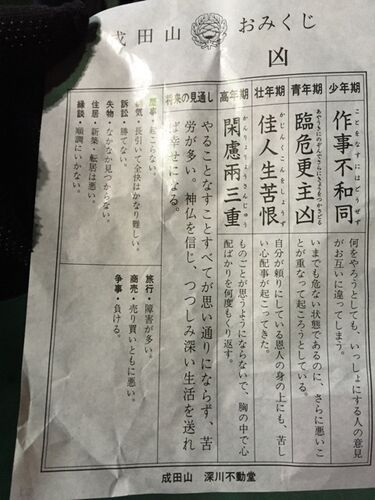 成田山
おみくじ
凶
少年期
作事不和同
何をやろうとしても、いっしょにする人の意見
がお互いに違ってしまう。
青年期
あやうきにのぞんでさらにきょうをつかさどる
臨危更主凶
いまでも危ない状態であるのに、さらに悪いこ
とが重なって起ころうとしている。
壮年期
佳人生苦恨
自分が頼りにしている恩人の身の上にも、苦し
い心配事が起こってきた。
高年期
かんりょりょうさんじゅう
閑慮兩三重
ものごとが思うようにならないで、胸の中で心
配ばかりを何度もくり返す。
将来の見通し
やることなすことすべてが思い通りにならず、苦
労が多い。神仏を信じ、つつしみ深い生活を送れ
ば幸せになる。
事・起こらない。
気・長引いて全快はかなり難しい。
訴訟・勝てない。
失物・なかなか見つからない。
住居・新築・転居は悪い。
縁談・順調にいかない。
旅行・障害が多い。
商売・売り買いともに悪い。
争事・負ける。
成田山 深川不動堂